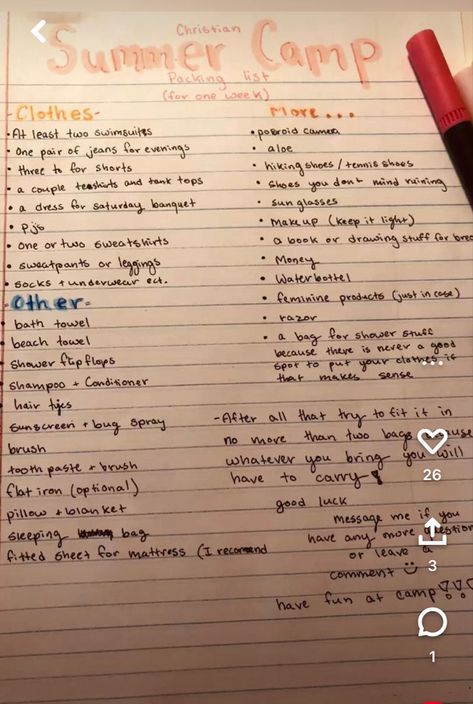 Christian
Summer Camp
Packing list
(for one week)
-Clothes-
• At least two swimsuits
• One pair of jeans for evenings
• three to for shorts
• a couple teshirts and tank tops
• a dress for saturday banquet
• Pjs
• one or two sweatshirts
• sweatpants or leggings
• socks + underwear ect.
-Other-
bath towel
beach towel
shower flip flops
shampoo + Conditioner
hair ties
sunscreen + bug spray
brush
tooth paste + brush
flat iron (optional)
pillow + blanket
sleeping bag
fitted sheet for mattress (I recomend
More...
• poloroid camera
• aloe
• hiking shoes / tennis shoes
• shoes you dont mind ruining
• sunglasses
• Makeup (keep it light)
• a book or drawing stuff for
• Money
• Waterbottel
• feminine products (just in case)
• razor
• a bag for shower stuff
because there is never a good
spot to put your clothes if
that makes sense
-After all that try to fit it in
no more than two bags
whatever you bring you will
have to carry!
good luck
message me if you
have any more
or leave a
comment
have fun at camp!!!
26
3
1